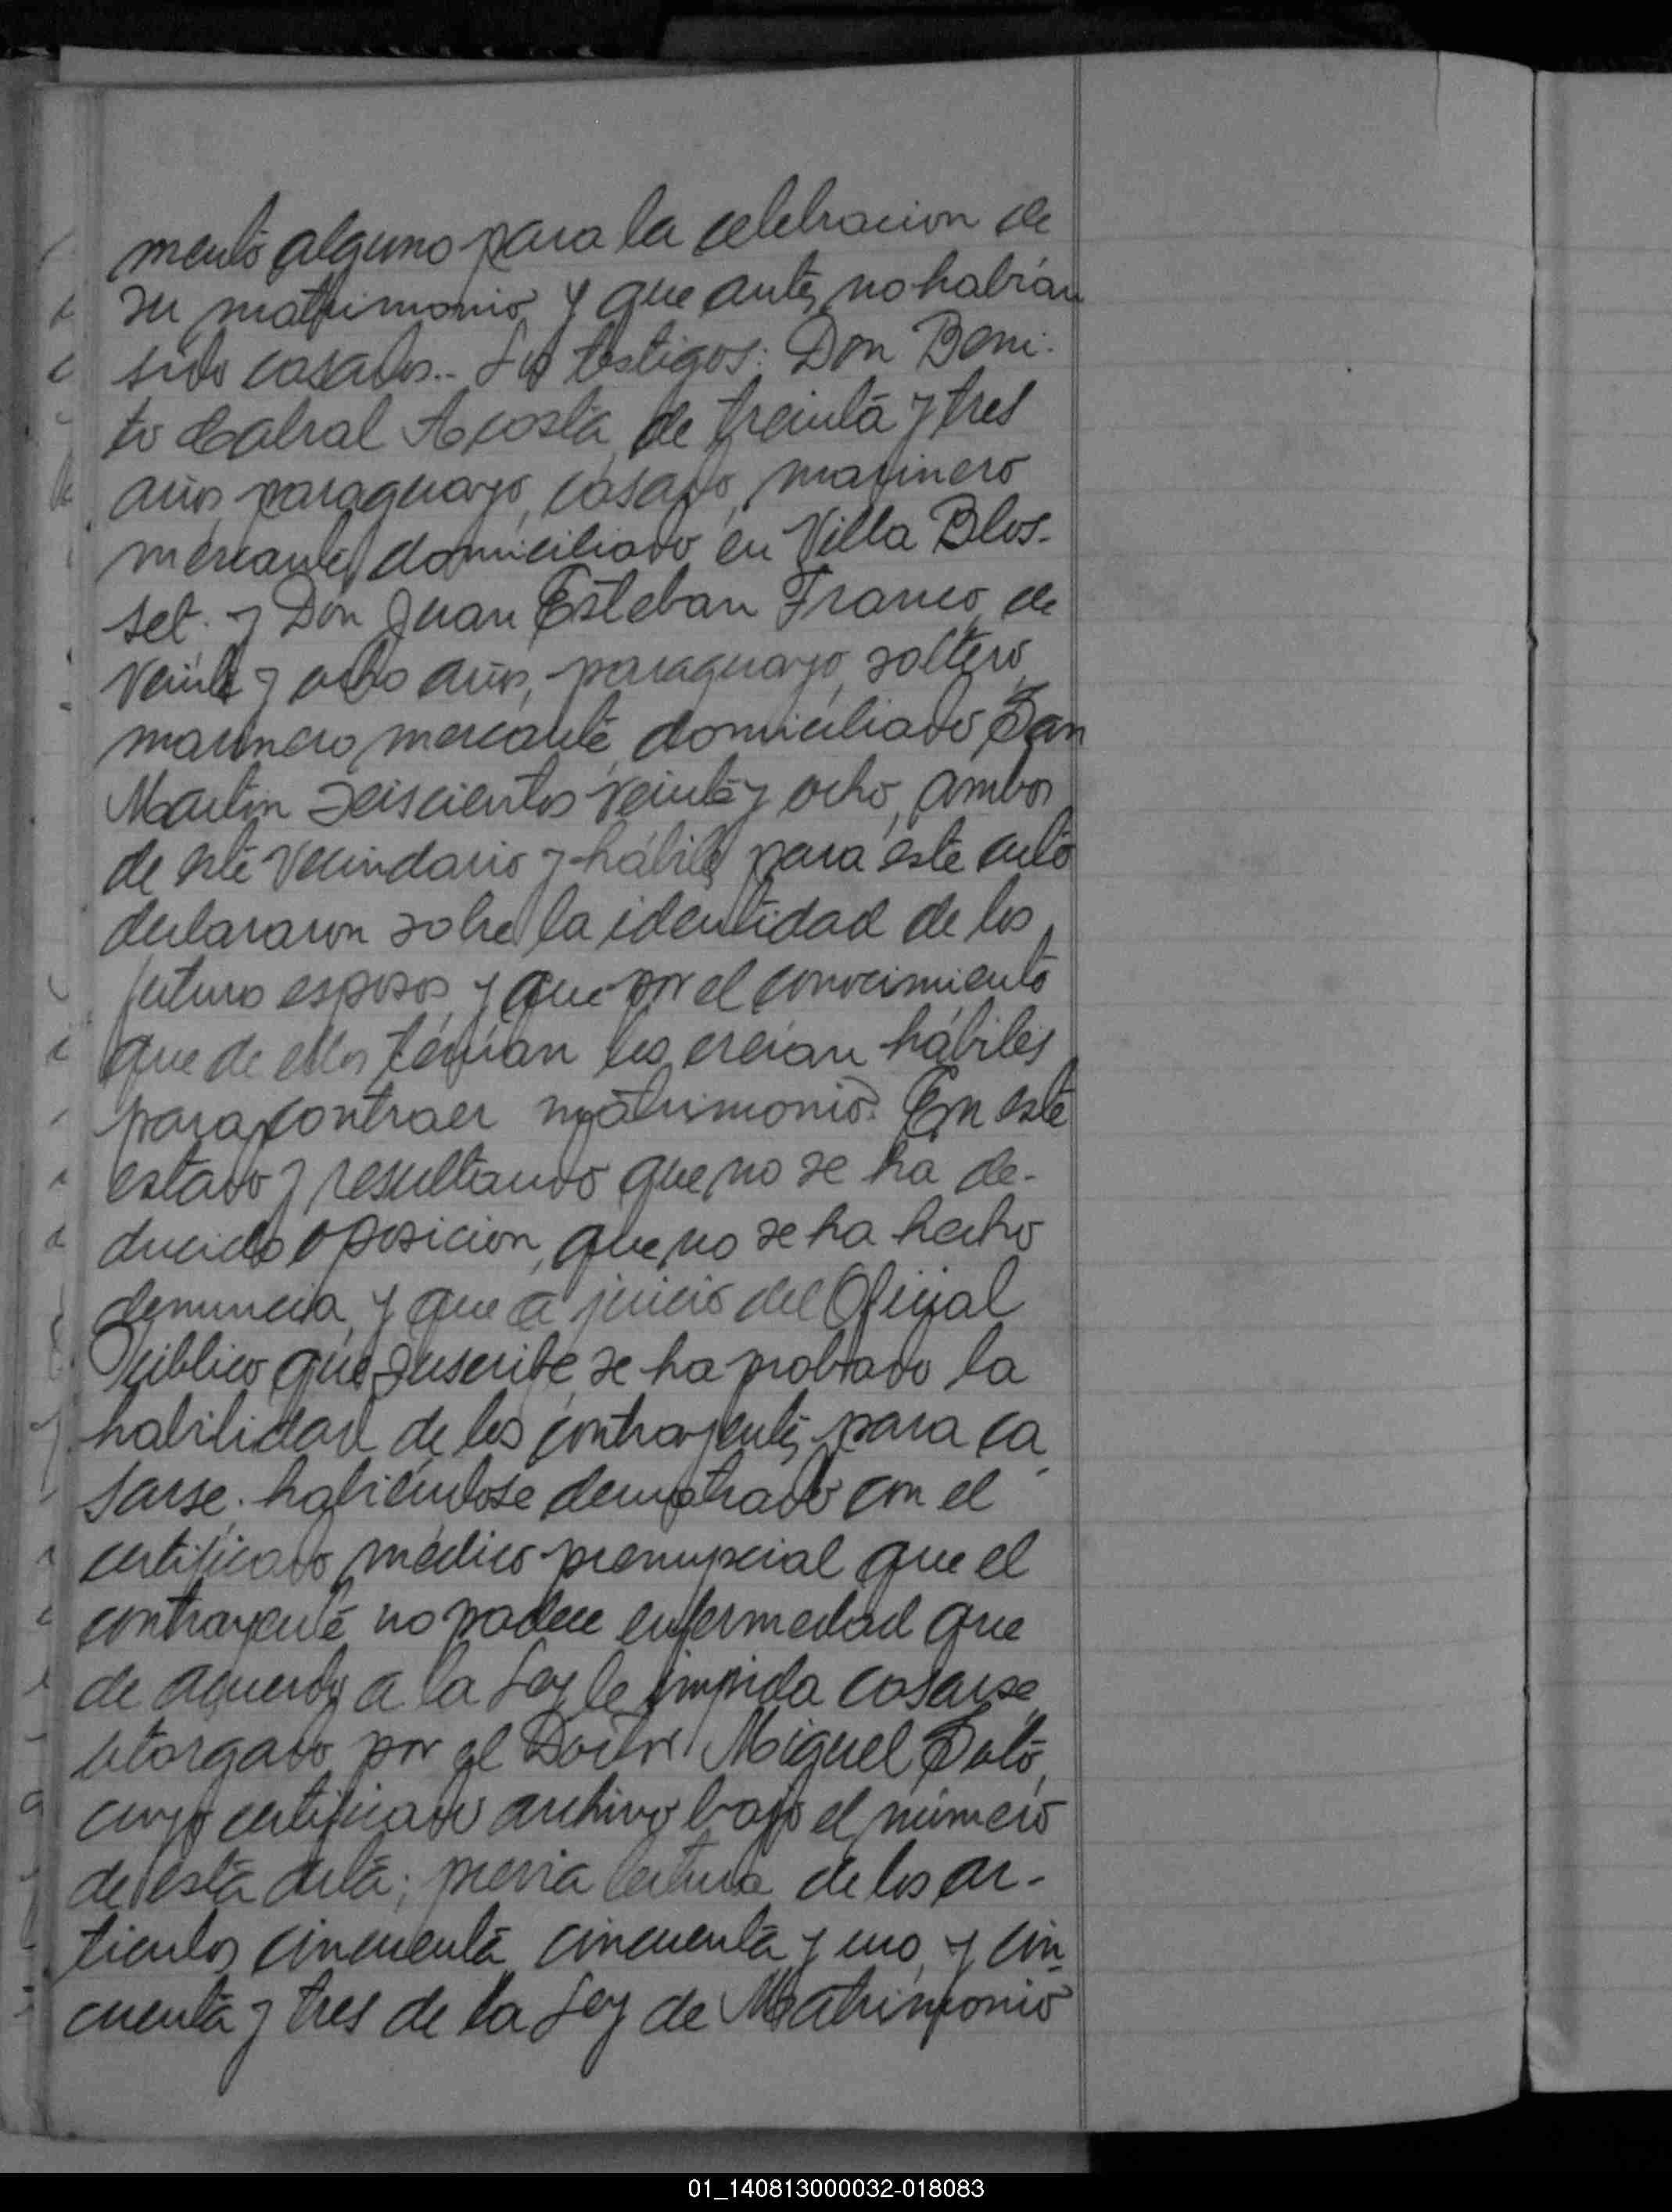 mento alguno para la celebracion de
su matrimonio y que antes no habían
sido casados.- Los testigos: Don Beni-
to Cabral Acosta, de treinta y tres
años, paraguayo, casado, marinero
mercante, domiciliado en Villa Blos-
set. y Don Juan Esteban Franco, de
veinte y ocho años, paraguayo, soltero,
marinero mercante, domiciliado San
Martin seiscientos veinte y ocho, ambos
de este vecindario y hábiles para este acto
declararon sobre la identidad de los
futuros esposos, y que por el conocimiento
que de ellos tenían los creían hábiles
para contraer matrimonio. En este
estado y resultando que no se ha de-
ducido oposicion, que no se ha hecho
denuncia, y que a juicio del Oficial
Público que suscribe, se ha probado la
habilidad de los contrayentes para ca-
sarse. habiéndose demostrado con el
certificado médico prenupcial que el
contrayente no padece enfermedad que
de acuerdo a la Ley le impida casarse,
otorgado por el Doctor Miguel Soto,
cuyo certificado archivo bajo el número
de esta acta; previa lectura de los ar-
ticulos cincuenta, cincuenta y uno, y cin-
cuenta y tres de la Ley de Matrimonio
01_140813000032-018083